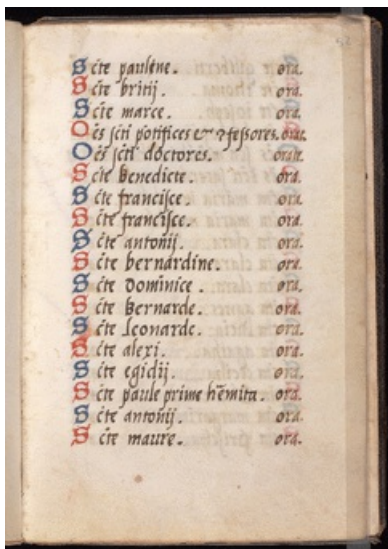 Scte paulene. ora.
Scte britij. ora.
Scte marce. ora.
Oes scti potifices & ꝯfessores. orate.
Oes scti doctores. orate.
Scte benedicte. ora.
Scte francisce. ora.
Scte francisce. ora.
Scte antonij. ora.
Scte bernardine. ora.
Scte dominice. ora.
Scte bernarde. ora.
Scte leonarde. ora.
Scte alexi. ora.
Scte egidij. ora.
Scte paule prime hēmita. ora.
Scte antonij. ora.
Scte maure. ora.